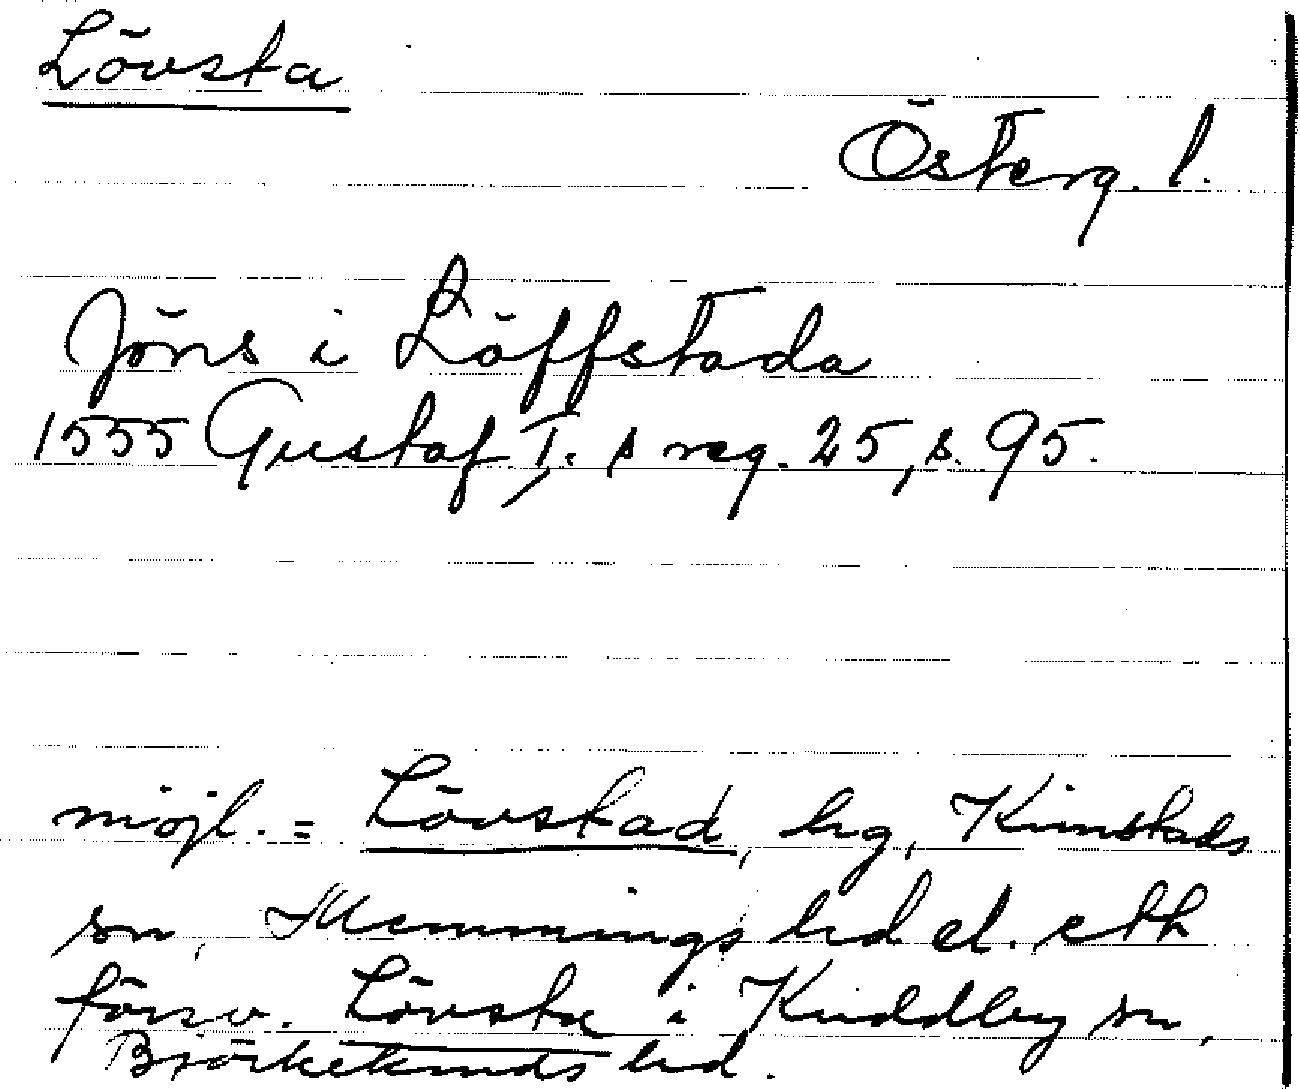 Lövsta
Österg. l.
Jöns i Löffstada
1555 Gustaf I. s reg. 25, s. 95.
möjl. = Lövstad, hg, Kimstads
sn, Memmings hd el. ett
försv. Lövsta i Kuddby sn,
Björkekinds hd.